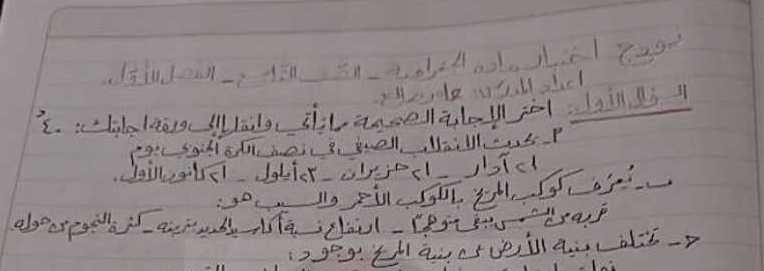 نموذج اختبار مادة الجغرافية _ الصف التاسع _ الفصل الأول.
اعداد المدرس:
السؤال الأول: اختر الإجابة الصحيحة مما يأتي وانقلها إلى ورقة اجابتك: ٤٠ د
٢- يحدث الانقلاب الصيفي في نصف الكرة الجنوبي يوم
٢١ آذار _ ٢١ حزيران _ ٢٣ أيلول _ ٢١ كانون الأول.
ب- يُعرف كوكب المريخ بالكوكب الأحمر والسبب هو:
قربه من الشمس يبقى متوهجاً _ ارتفاع نسبة أكاسيد الحديد بتربته _ كثرة النجوم من حوله
ج- تختلف بنية الأرض عن بنية المريخ بوجود: